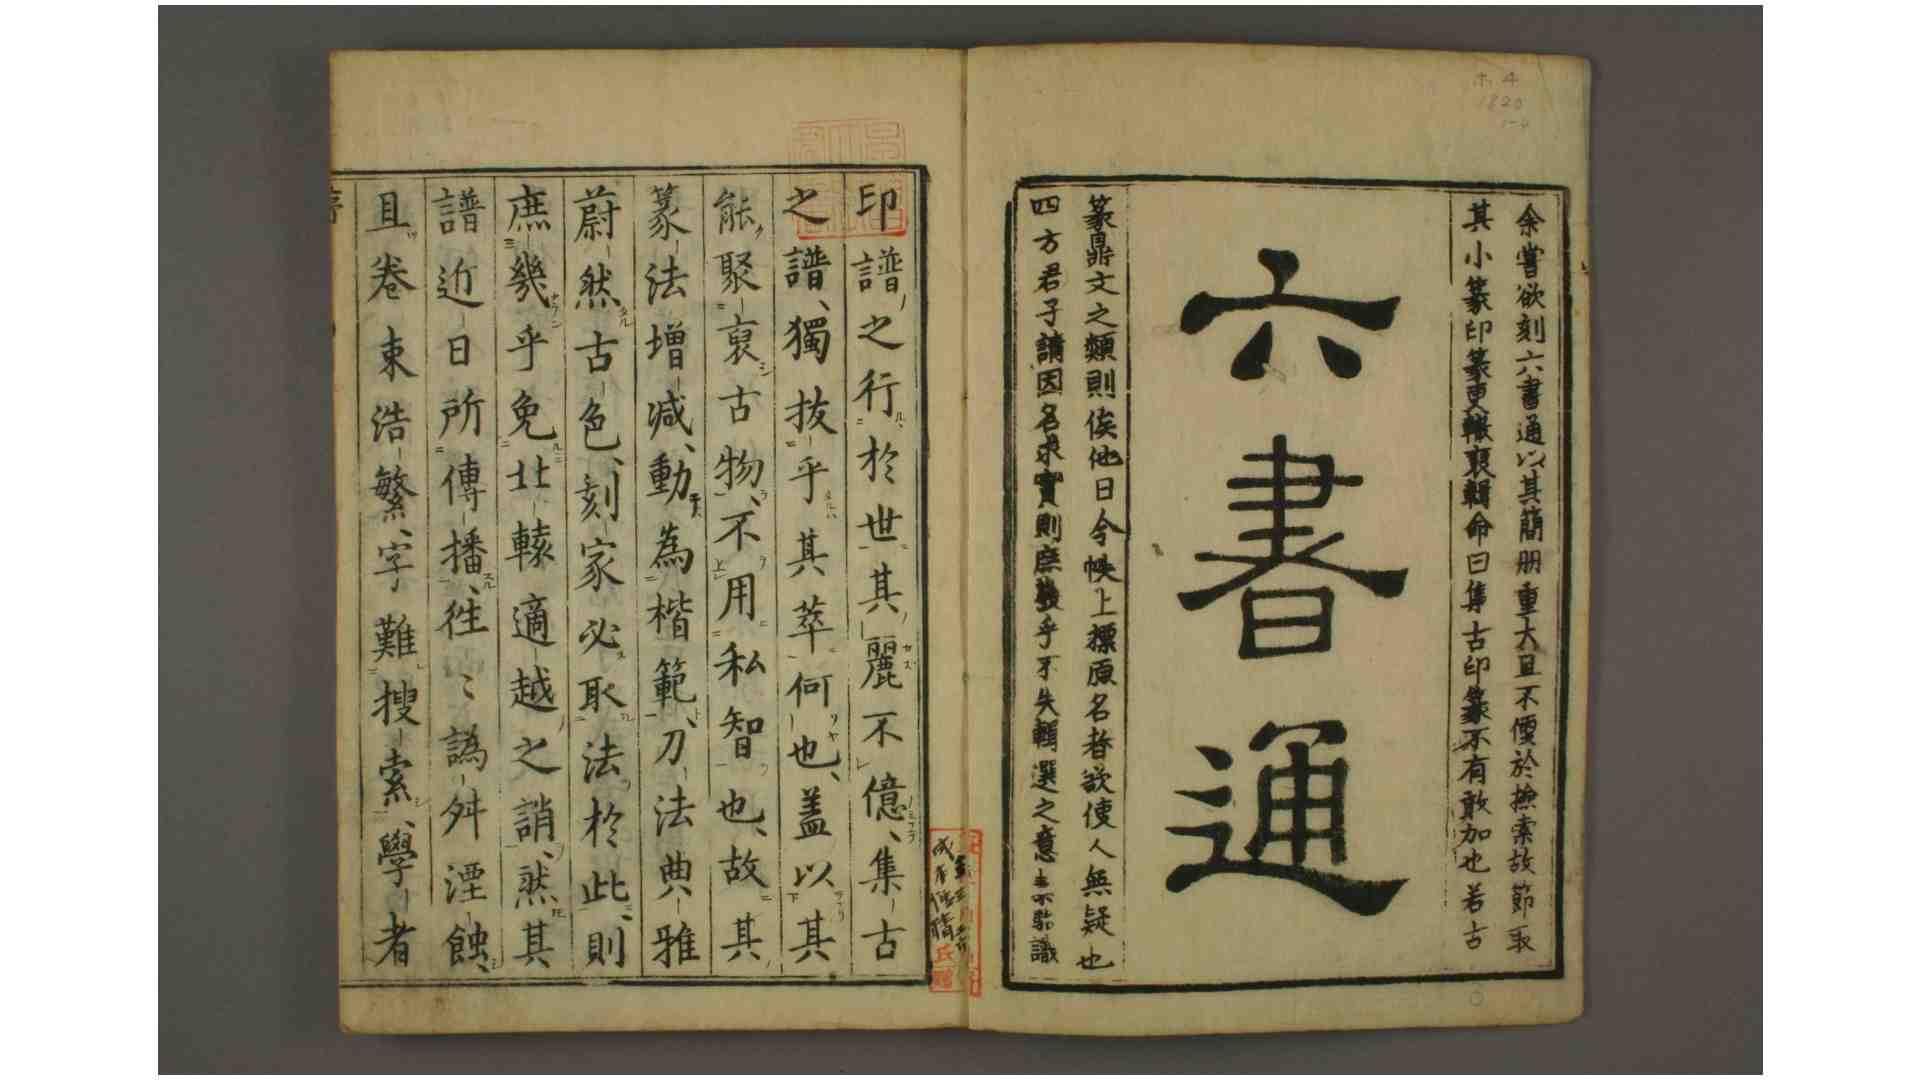 ホ4
1820
1-4
余嘗欲刻六書通以其簡册重大且不便於撿索故節取
其小篆印篆更輟裒輯命曰集古印篆不有敢加也若古
六書通
篆鼎文之類則俟他日今帙上標原名者欲使人無疑也
四方君子請因名求實則庶幾乎不失輯選之意
印譜之行於世其麗不億、集古
之譜、獨抜乎其萃何也、盖以其
能聚裒古物、不用私智也、故其
篆法增减、動為楷範、刀法典雅
蔚然古色、刻家必取法於此、則
庶幾乎免北轅適越之誚、然其
譜近日所傳播、往〻譌舛湮蝕、
且卷束浩繁、字難搜索、學者